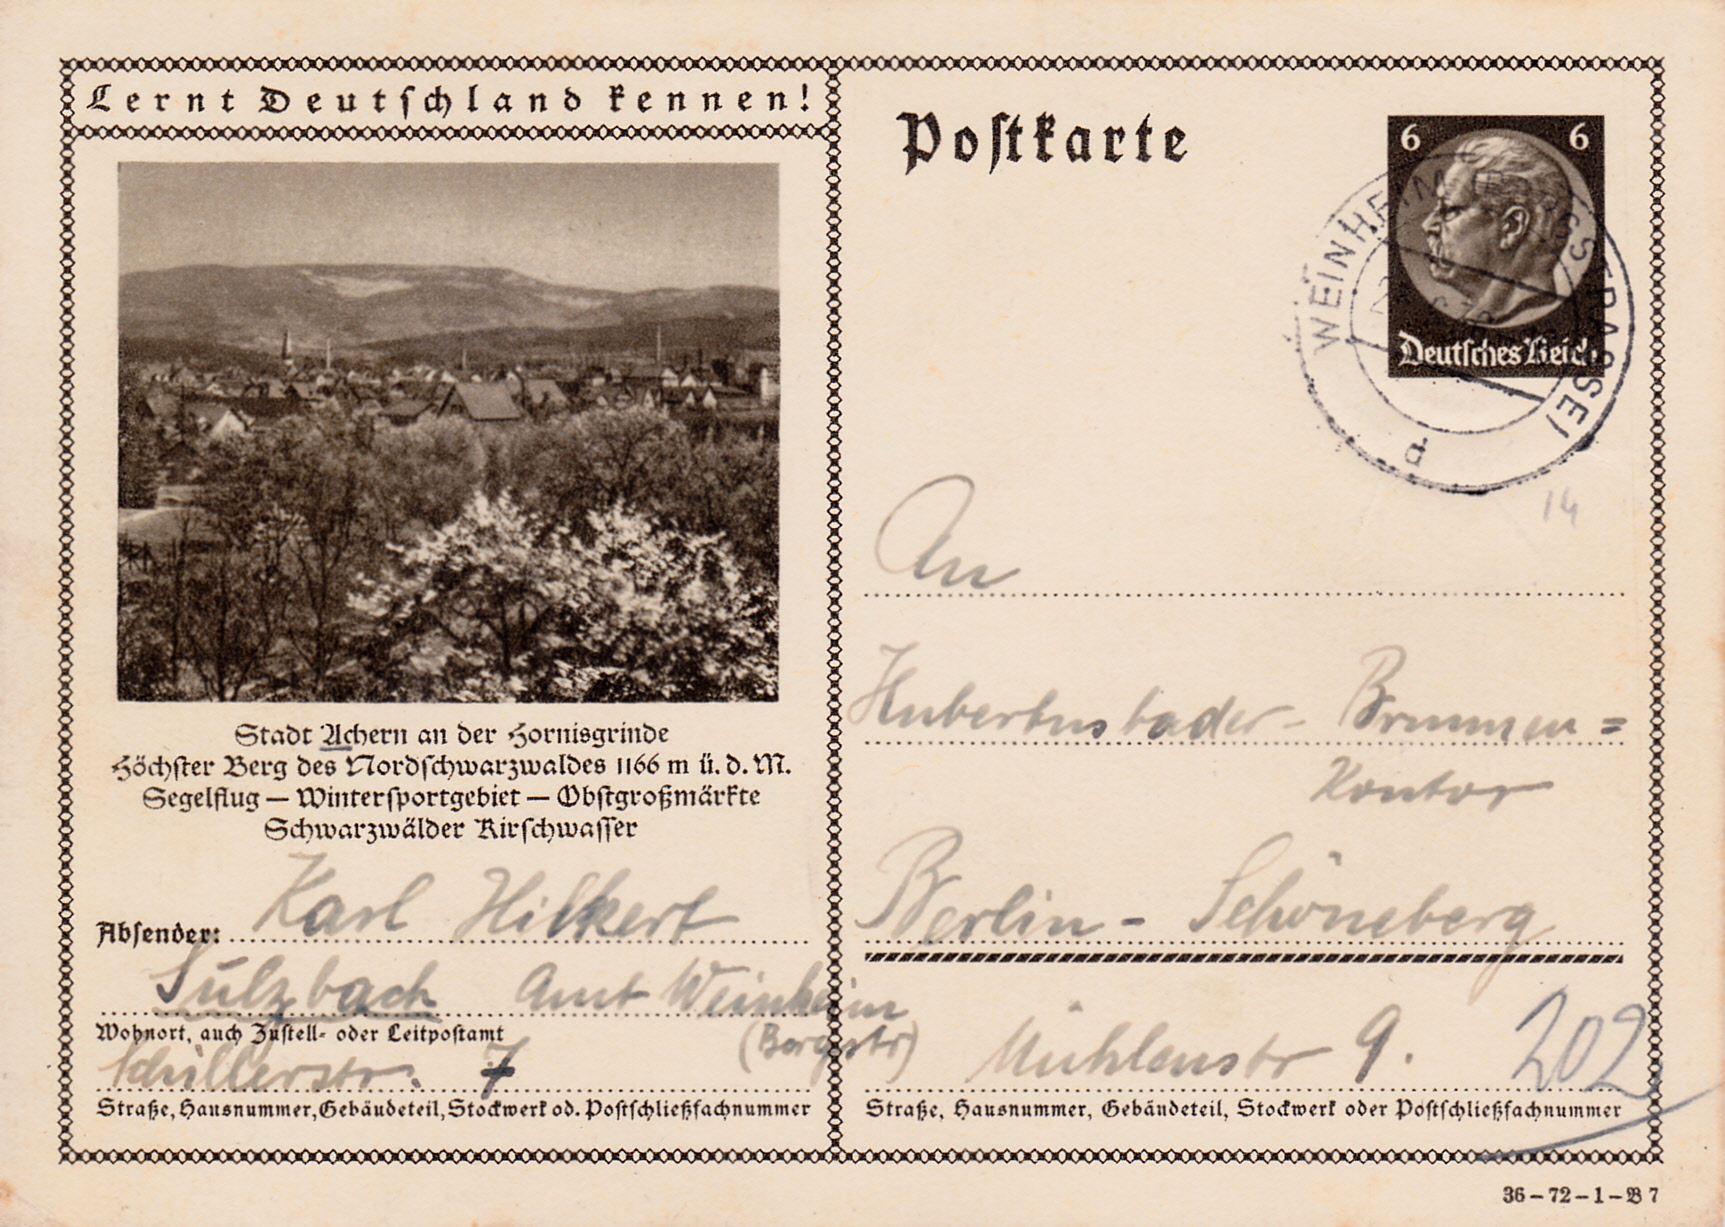 Lernt Deutschland kennen!
Stadt Achern an der Hornisgrinde
Höchster Berg des Nordschwarzwaldes 1166 m ü. d. M.
Segelflug – Wintersportgebiet – Obstgroßmärkte
Schwarzwälder Kirschwasser
Absender: Karl Hilkert
Sulzbach Amt Weinheim
Wohnort, auch Zustell- oder Leitpostamt
(Bergstr)
Schillerstr. 7
Straße, Hausnummer, Gebäudeteil, Stockwerk od. Postschließfachnummer
Postkarte
6 6
Deutsches Reich
WEINHEIM (BERGSTRASSE)
d
14
An
Hubertusbader- Brunnen=
Kontor
Berlin - Schöneberg
Mühlenstr 9.
202
Straße, Hausnummer, Gebäudeteil, Stockwerk oder Postschließfachnummer
36-72-1-B7